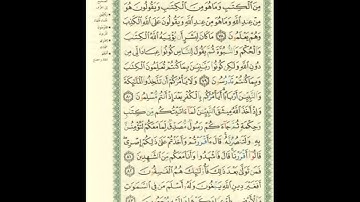 مِنَ ٱلْكِتَٰبِ وَمَا هُوَ مِنَ ٱلْكِتَٰبِ وَيَقُولُونَ هُوَ
مِنْ عِندِ ٱللَّهِ وَمَا هُوَ مِنْ عِندِ ٱللَّهِ وَيَقُولُونَ عَلَى ٱللَّهِ ٱلْكَذِبَ
وَهُمْ يَعْلَمُونَ ٧٨ مَا كَانَ لِبَشَرٍ أَن يُؤْتِيَهُ ٱللَّهُ ٱلْكِتَٰبَ
وَٱلْحُكْمَ وَٱلنُّبُوَّةَ ثُمَّ يَقُولَ لِلنَّاسِ كُونُوا۟ عِبَادًا لِّى مِن
دُونِ ٱللَّهِ وَلَٰكِن كُونُوا۟ رَبَّٰنِيِّۦنَ بِمَا كُنتُمْ تُعَلِّمُونَ ٱلْكِتَٰبَ
وَبِمَا كُنتُمْ تَدْرُسُونَ ٧٩ وَلَا يَأْمُرَكُمْ أَن تَتَّخِذُوا۟ ٱلْمَلَٰٓئِكَةَ
وَٱلنَّبِيِّۦنَ أَرْبَابًا أَيَأْمُرُكُم بِٱلْكُفْرِ بَعْدَ إِذْ أَنتُم مُّسْلِمُونَ ٨٠
وَإِذْ أَخَذَ ٱللَّهُ مِيثَٰقَ ٱلنَّبِيِّۦنَ لَمَآ ءَاتَيْتُكُم مِّن كِتَٰبٍ
وَحِكْمَةٍ ثُمَّ جَآءَكُمْ رَسُولٌ مُّصَدِّقٌ لِّمَا مَعَكُمْ لَتُؤْمِنُنَّ
بِهِۦ وَلَتَنصُرُنَّهُۥ قَالَ ءَأَقْرَرْتُمْ وَأَخَذْتُمْ عَلَىٰ ذَٰلِكُمْ إِصْرِى
قَالُوٓا۟ أَقْرَرْنَا قَالَ فَٱشْهَدُوا۟ وَأَنَا۠ مَعَكُم مِّنَ ٱلشَّٰهِدِينَ ٨١
فَمَن تَوَلَّىٰ بَعْدَ ذَٰلِكَ فَأُو۟لَٰٓئِكَ هُمُ ٱلْفَٰسِقُونَ ٨٢
أَفَغَيْرَ دِينِ ٱللَّهِ يَبْغُونَ وَلَهُۥٓ أَسْلَمَ مَن فِى ٱلسَّمَٰوَٰتِ